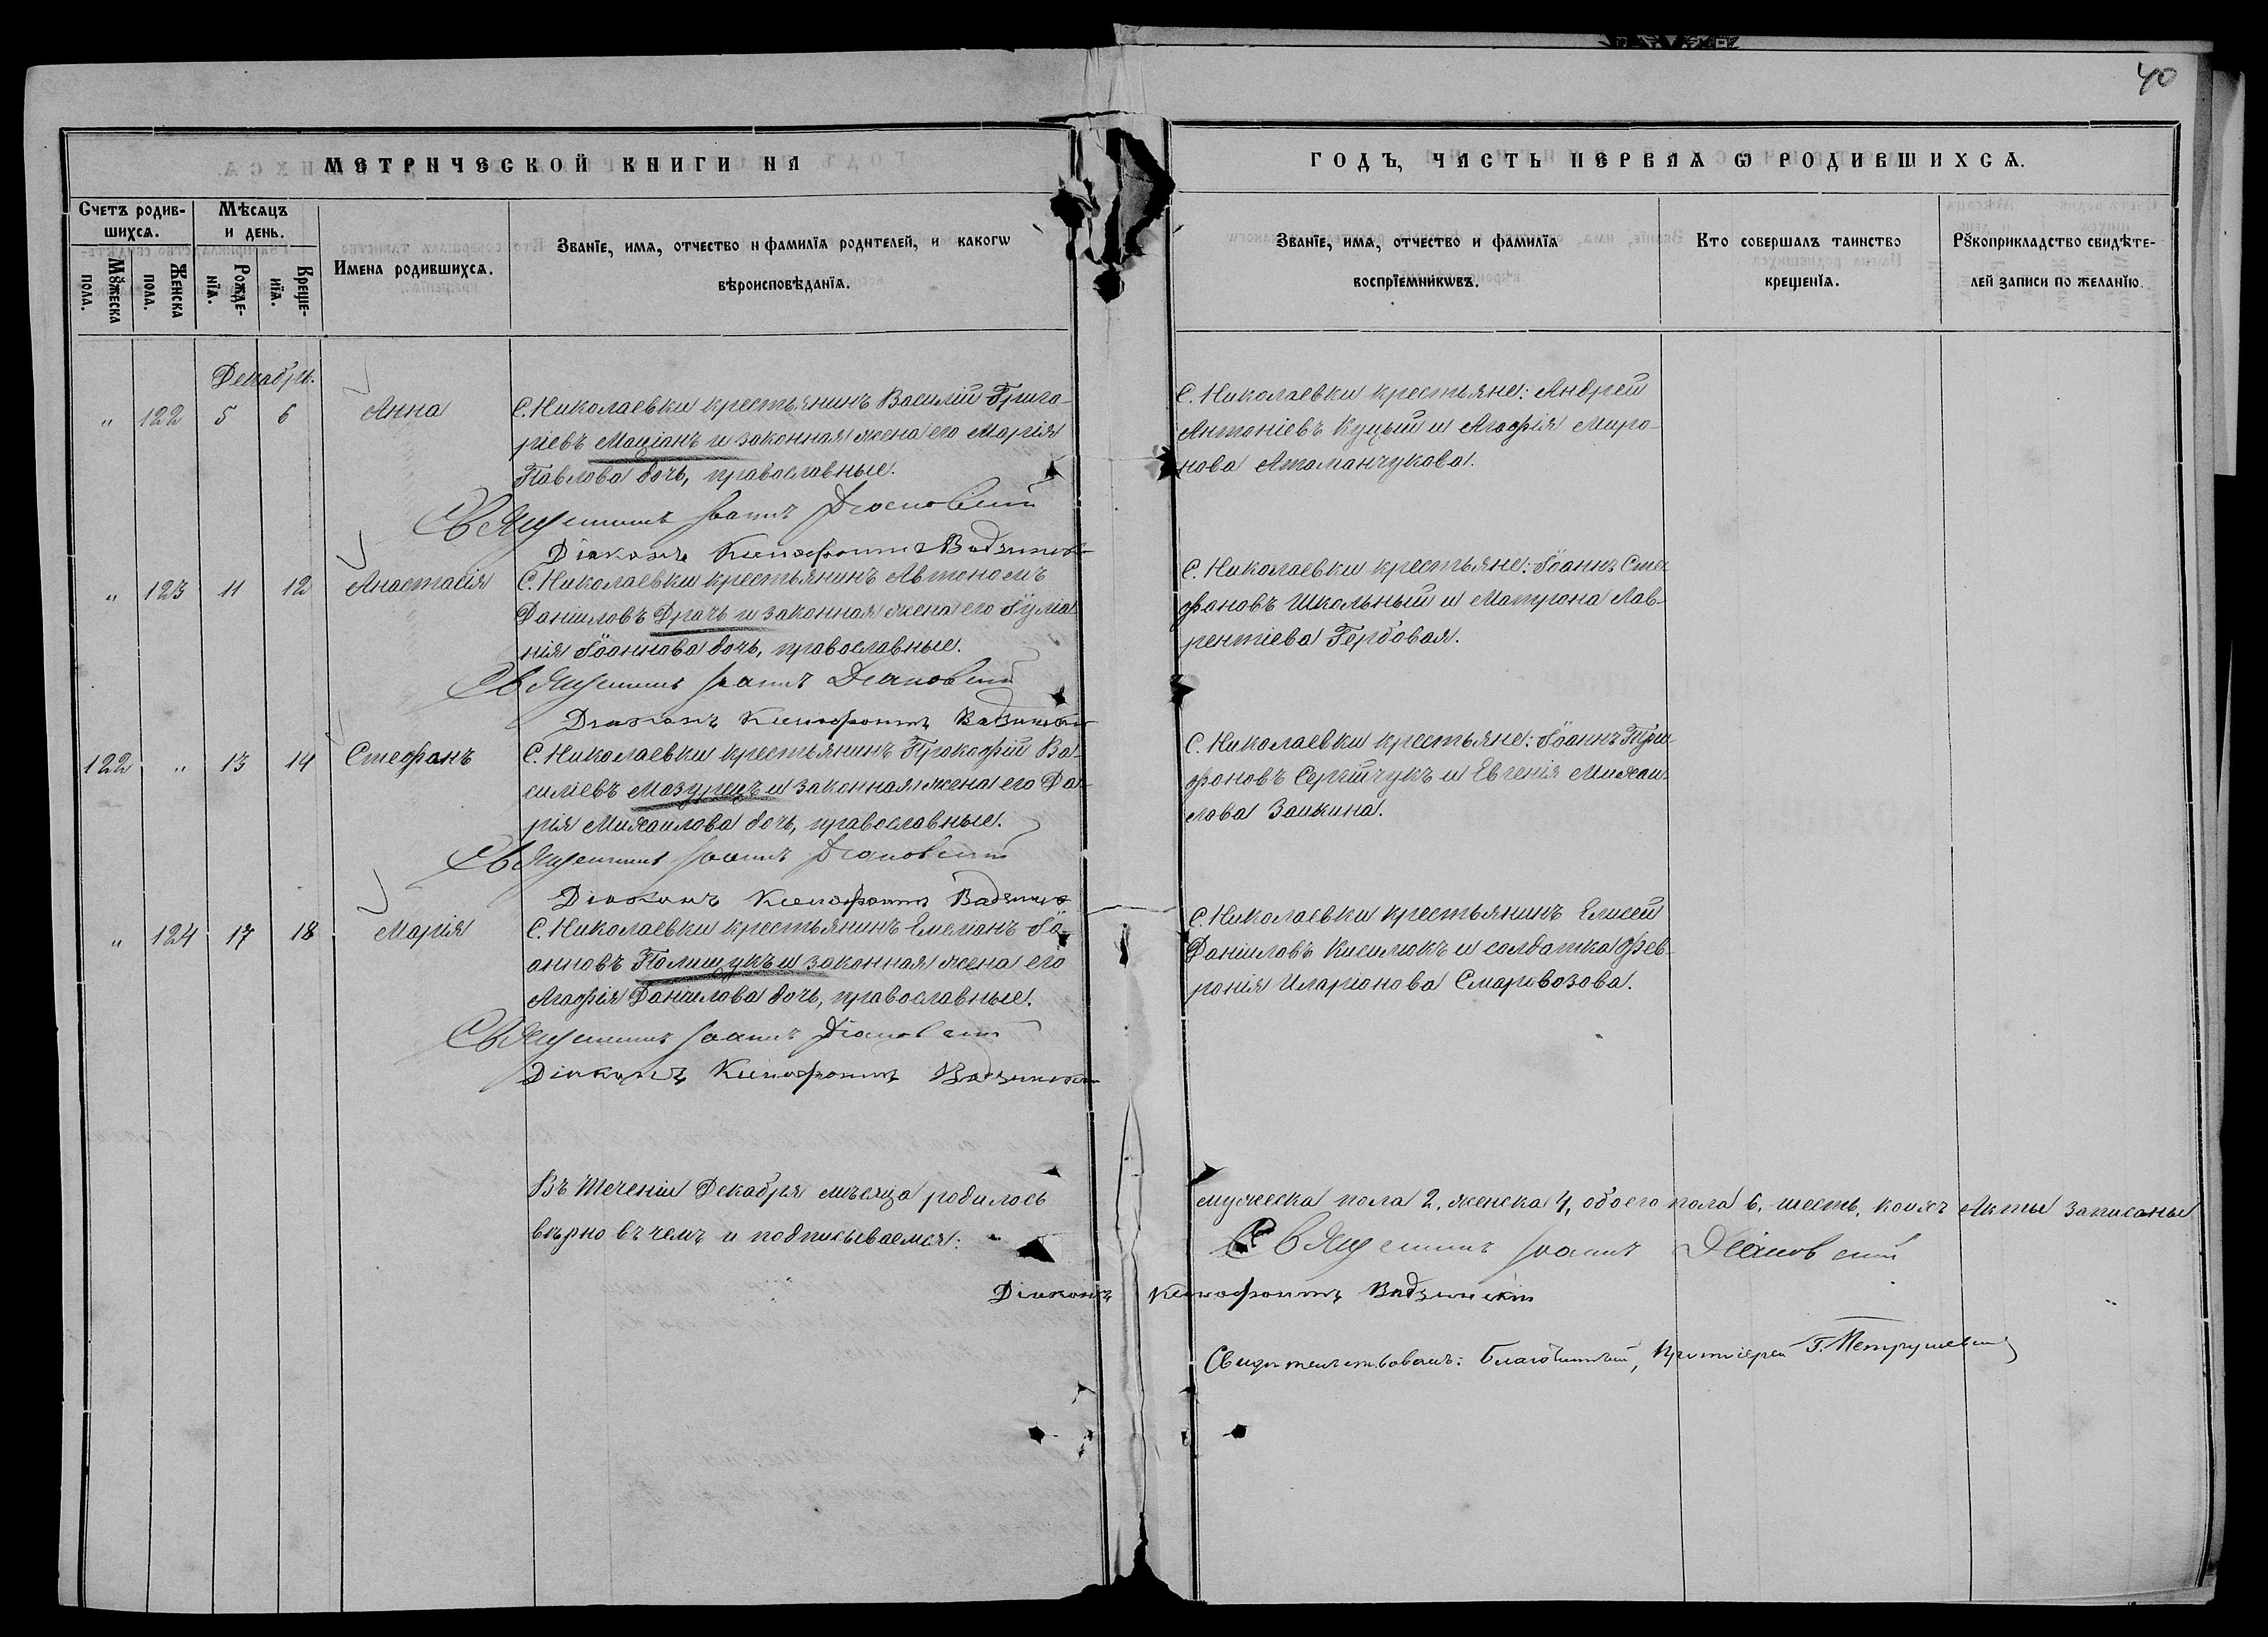 40
МЕТРИЧЕСКОЙ КНИГИ НА
ГОДЪ, ЧАСТЬ ПЕРВАЯ Ѡ РОДИВШИХСѦ.
Счетъ родив-
шихсѧ.
Мѣсѧцъ
и день.
Мꙋжеска
пола.
Женска
пола.
Рожде-
нїѧ.
Креще-
нїѧ.
Имена родившихсѧ.
Званїе, имѧ, отчество и фамилїѧ родителей, и какогѡ
вѣроисповѣданїѧ.
Званїе, имѧ, отчество и фамилїѧ
воспрїемникѡвъ.
Кто совершалъ таинство
крещенїѧ.
Рꙋкоприкладство свидѣте-
лей записи по желанїю.
Декабрь.
„ 122 5 6 Анна
С. Николаевки крестьянинъ Василій Григо-
ріевъ Маціанъ и законная жена его Марія
Павлова дочь, православные.
Священникъ Іоаннъ
Діаконъ Ксенофонтъ
С. Николаевки крестьяне: Андрей
Антоніевъ Куцый и Агафія Миро-
нова Атаманчукова.
„ 123 11 12 Анастасія
С. Николаевки крестьянинъ Автономъ
Даніиловъ Драчъ и законная жена его Іуліа-
нія Іоаннова дочь, православные.
Священникъ Іоаннъ
Діаконъ Ксенофонтъ
С. Николаевки крестьяне: Іоаннъ Сте-
фановъ Школьный и Матрона Лав-
рентіева Гербовая.
122 „ 13 14 Стефанъ
С. Николаевки крестьянинъ Прокофій Ва-
силіевъ Мазурецъ и законная жена его Да-
рія Михаилова дочь, православные.
Священникъ Іоаннъ
Діаконъ Ксенофонтъ
С. Николаевки крестьяне: Іоаннъ Три-
фоновъ Сергійчукъ и Евгенія Михаи-
лова Заикина.
„ 124 17 18 Марія
С. Николаевки крестьянинъ Емеліанъ Іо-
анновъ Полищукъ и законная жена его
Агафія Даніилова дочь, православные.
Священникъ Іоаннъ
Діаконъ Ксенофонтъ
С. Николаевки крестьянинъ Елисей
Даніиловъ Кисилюкъ и солдатка Фев-
ронія Иларіонова Смаровозова.
Въ теченіи Декабря мѣсяца родилось мужеска пола 2, женска 4, обоего пола 6, шесть, коихъ Акты записаны
вѣрно въ чемъ и подписываемся:
Священникъ Іоаннъ
Діаконъ Ксенофонтъ
Свидѣтельствовалъ: Благочинный, Протоіерей Г. Петрушевскій